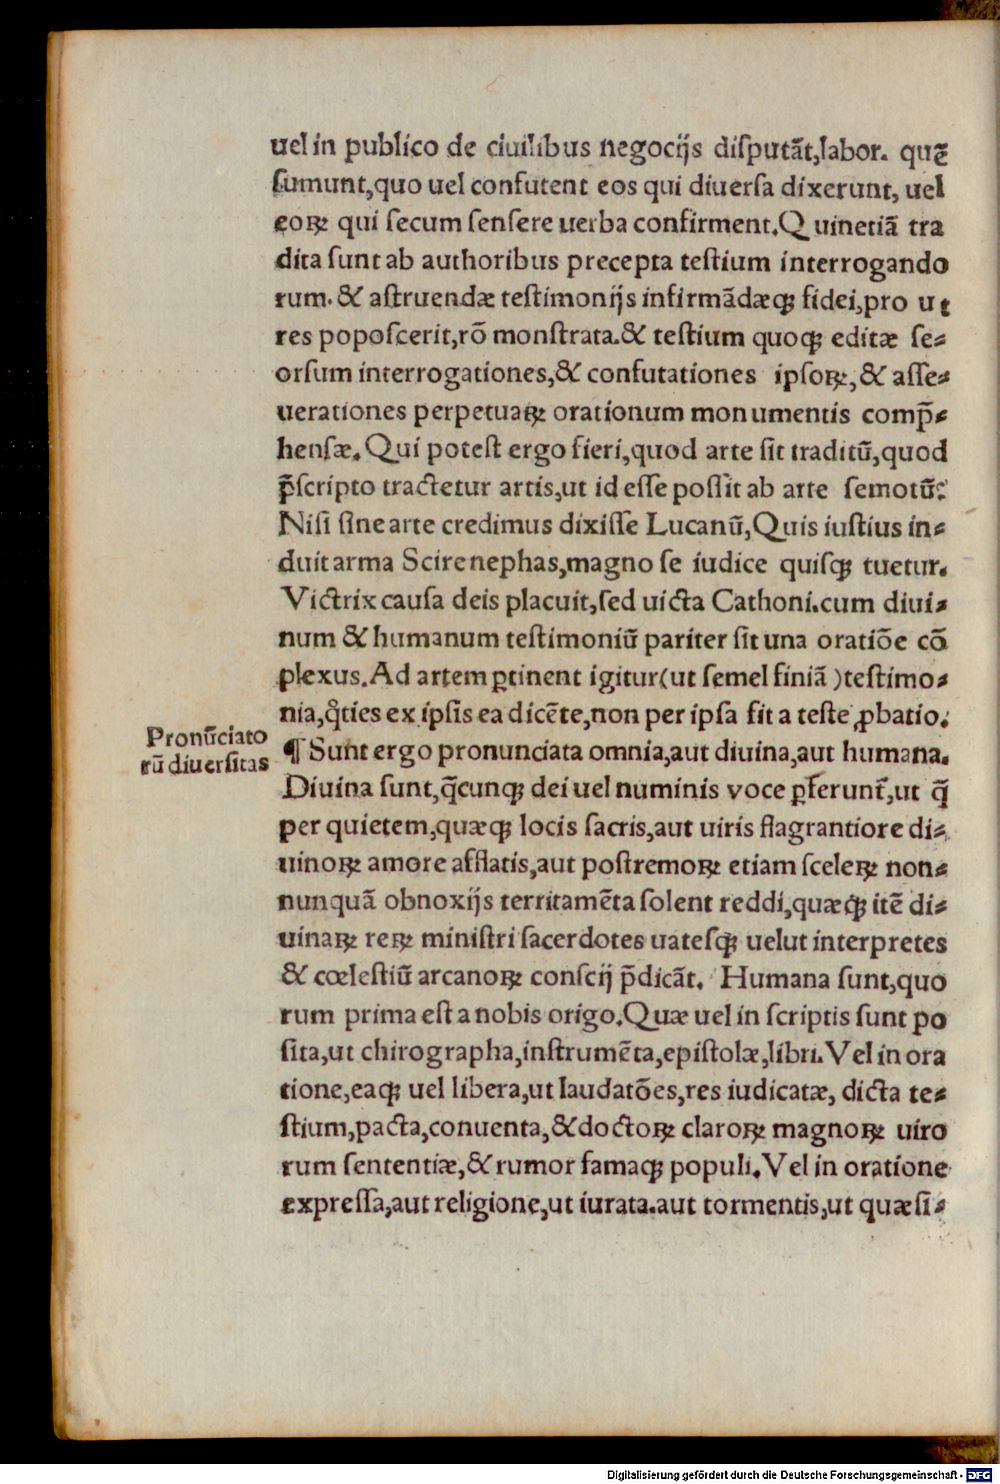 uel in publico de ciuilibus negocijs diſputãt,labor. quę
ſumunt,quo uel confutent eos qui diuerſa dixerunt, uel
eoꝝ qui ſecum ſenſere uerba confirment.Quinetiã tra
dita ſunt ab authoribus precepta teſtium interrogando
rum. & aſtruendæ teſtimonijs infirmãdæq; fidei,pro ut
res popoſcerit,rõ monſtrata.& teſtium quoq; editæ ſe⸗
orſum interrogationes,& confutationes ipſoꝝ,& aſſe⸗
uerationes perpetuaꝝ orationum monumentis comp̃⸗
henſæ.Qui poteſt ergo fieri,quod arte ſit traditũ,quod
p̃ſcripto tractetur artis,ut id eſſe poſſit ab arte ſemotũ?
Niſi ſine arte credimus dixiſſe Lucanũ,Quis iuſtius in⸗
duit arma Scire nephas,magno ſe iudice quiſq; tuetur.
Victrix cauſa deis placuit,ſed uicta Cathoni.cum diui⸗
num & humanum teſtimoniũ pariter ſit una oratiõe cõ
plexus.Ad artem ꝑtinent igitur(ut ſemel finiã )teſtimo⸗
nia,q̊ties ex ipſis ea dicẽte,non per ipſa fit a teſte ꝓbatio.
Pronũciato
rũ diuerſitas
¶ Sunt ergo pronunciata omnia,aut diuina,aut humana.
Diuina ſunt,q̃cunq; dei uel numinis voce ꝑferunt̃,ut q̃
per quietem,quæq; locis ſacris,aut uiris flagrantiore di⸗
uinoꝝ amore afflatis,aut poſtremoꝝ etiam ſceleꝝ non⸗
nunquã obnoxijs territamẽta ſolent reddi,quæq; itẽ di⸗
uinaꝝ reꝝ miniſtri ſacerdotes uateſq; uelut interpretes
& cœleſtiũ arcanoꝝ conſcij p̃dicãt. Humana ſunt,quo
rum prima eſt a nobis origo.Quæ uel in ſcriptis ſunt po
ſita,ut chirographa,inſtrumẽta,epiſtolæ,libri.Vel in ora
tione,eaq; uel libera,ut laudatões,res iudicatæ, dicta te⸗
ſtium,pacta,conuenta,&doctoꝝ claroꝝ magnoꝝ uiro
rum ſententiæ,& rumor famaq; populi.Vel in oratione
expreſſa,aut religione,ut iurata.aut tormentis,ut quæſi⸗
Digitalisierung gefördert durch die Deutsche Forschungsgemeinschaft · DFG